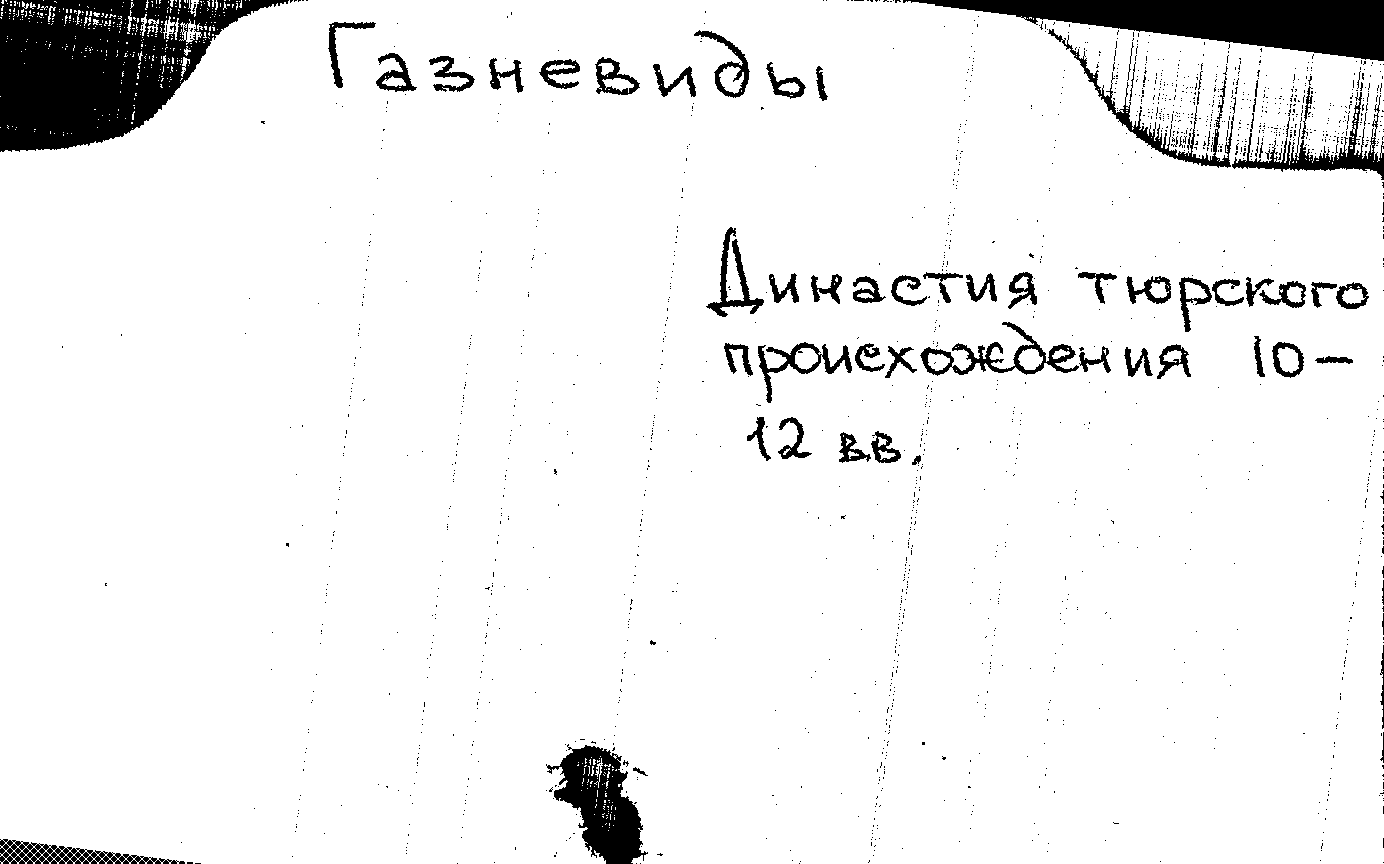 Газневиды
Династия тюрского
происхождения 10-
12 вв.